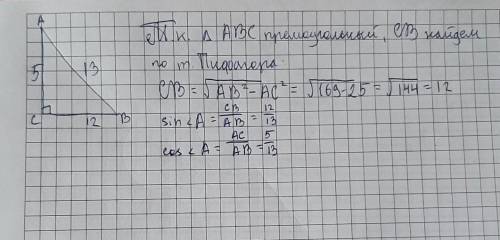 A
5
13
C
12
B
Т.к. Δ ABC прямоугольный, CB найдем
по т. Пифагора
CB = √AB² - AC² = √169-25 = √144 = 12
sin∠A = CB/AB = 12/13
cos∠A = AC/AB = 5/13